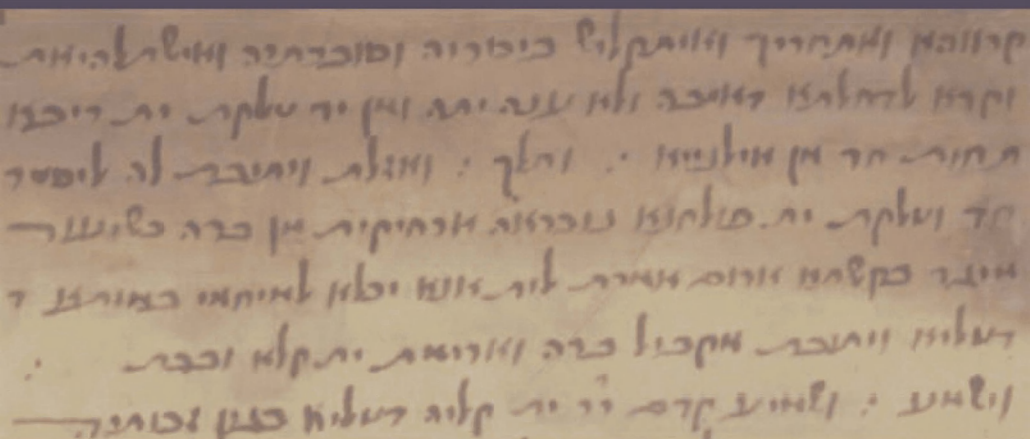 קרווהא ואתחריך ואיתקליש ביסוריה וסוברתיה ואישתלהיאת
וקרא לדחלתא דאיבה ולא ענה יתה ומן יד טלקת ית ריבא
תחות חד מן אילנייא : ותלך : ואזלת ויתיבת לה ליסטר
חד וטלקת ית פולחנא נוכראה ארחיקית מן ברה כשיעור
מיגד בקשתא ארום אמרת לית אנא יכלא למיחמי במותא ד
דטליא ויתיבת מקביל ברה וארימת ית קלא ובכת :
וישמע : ושמיע קדם ייי ית קליה דטליא בגין זכותיה